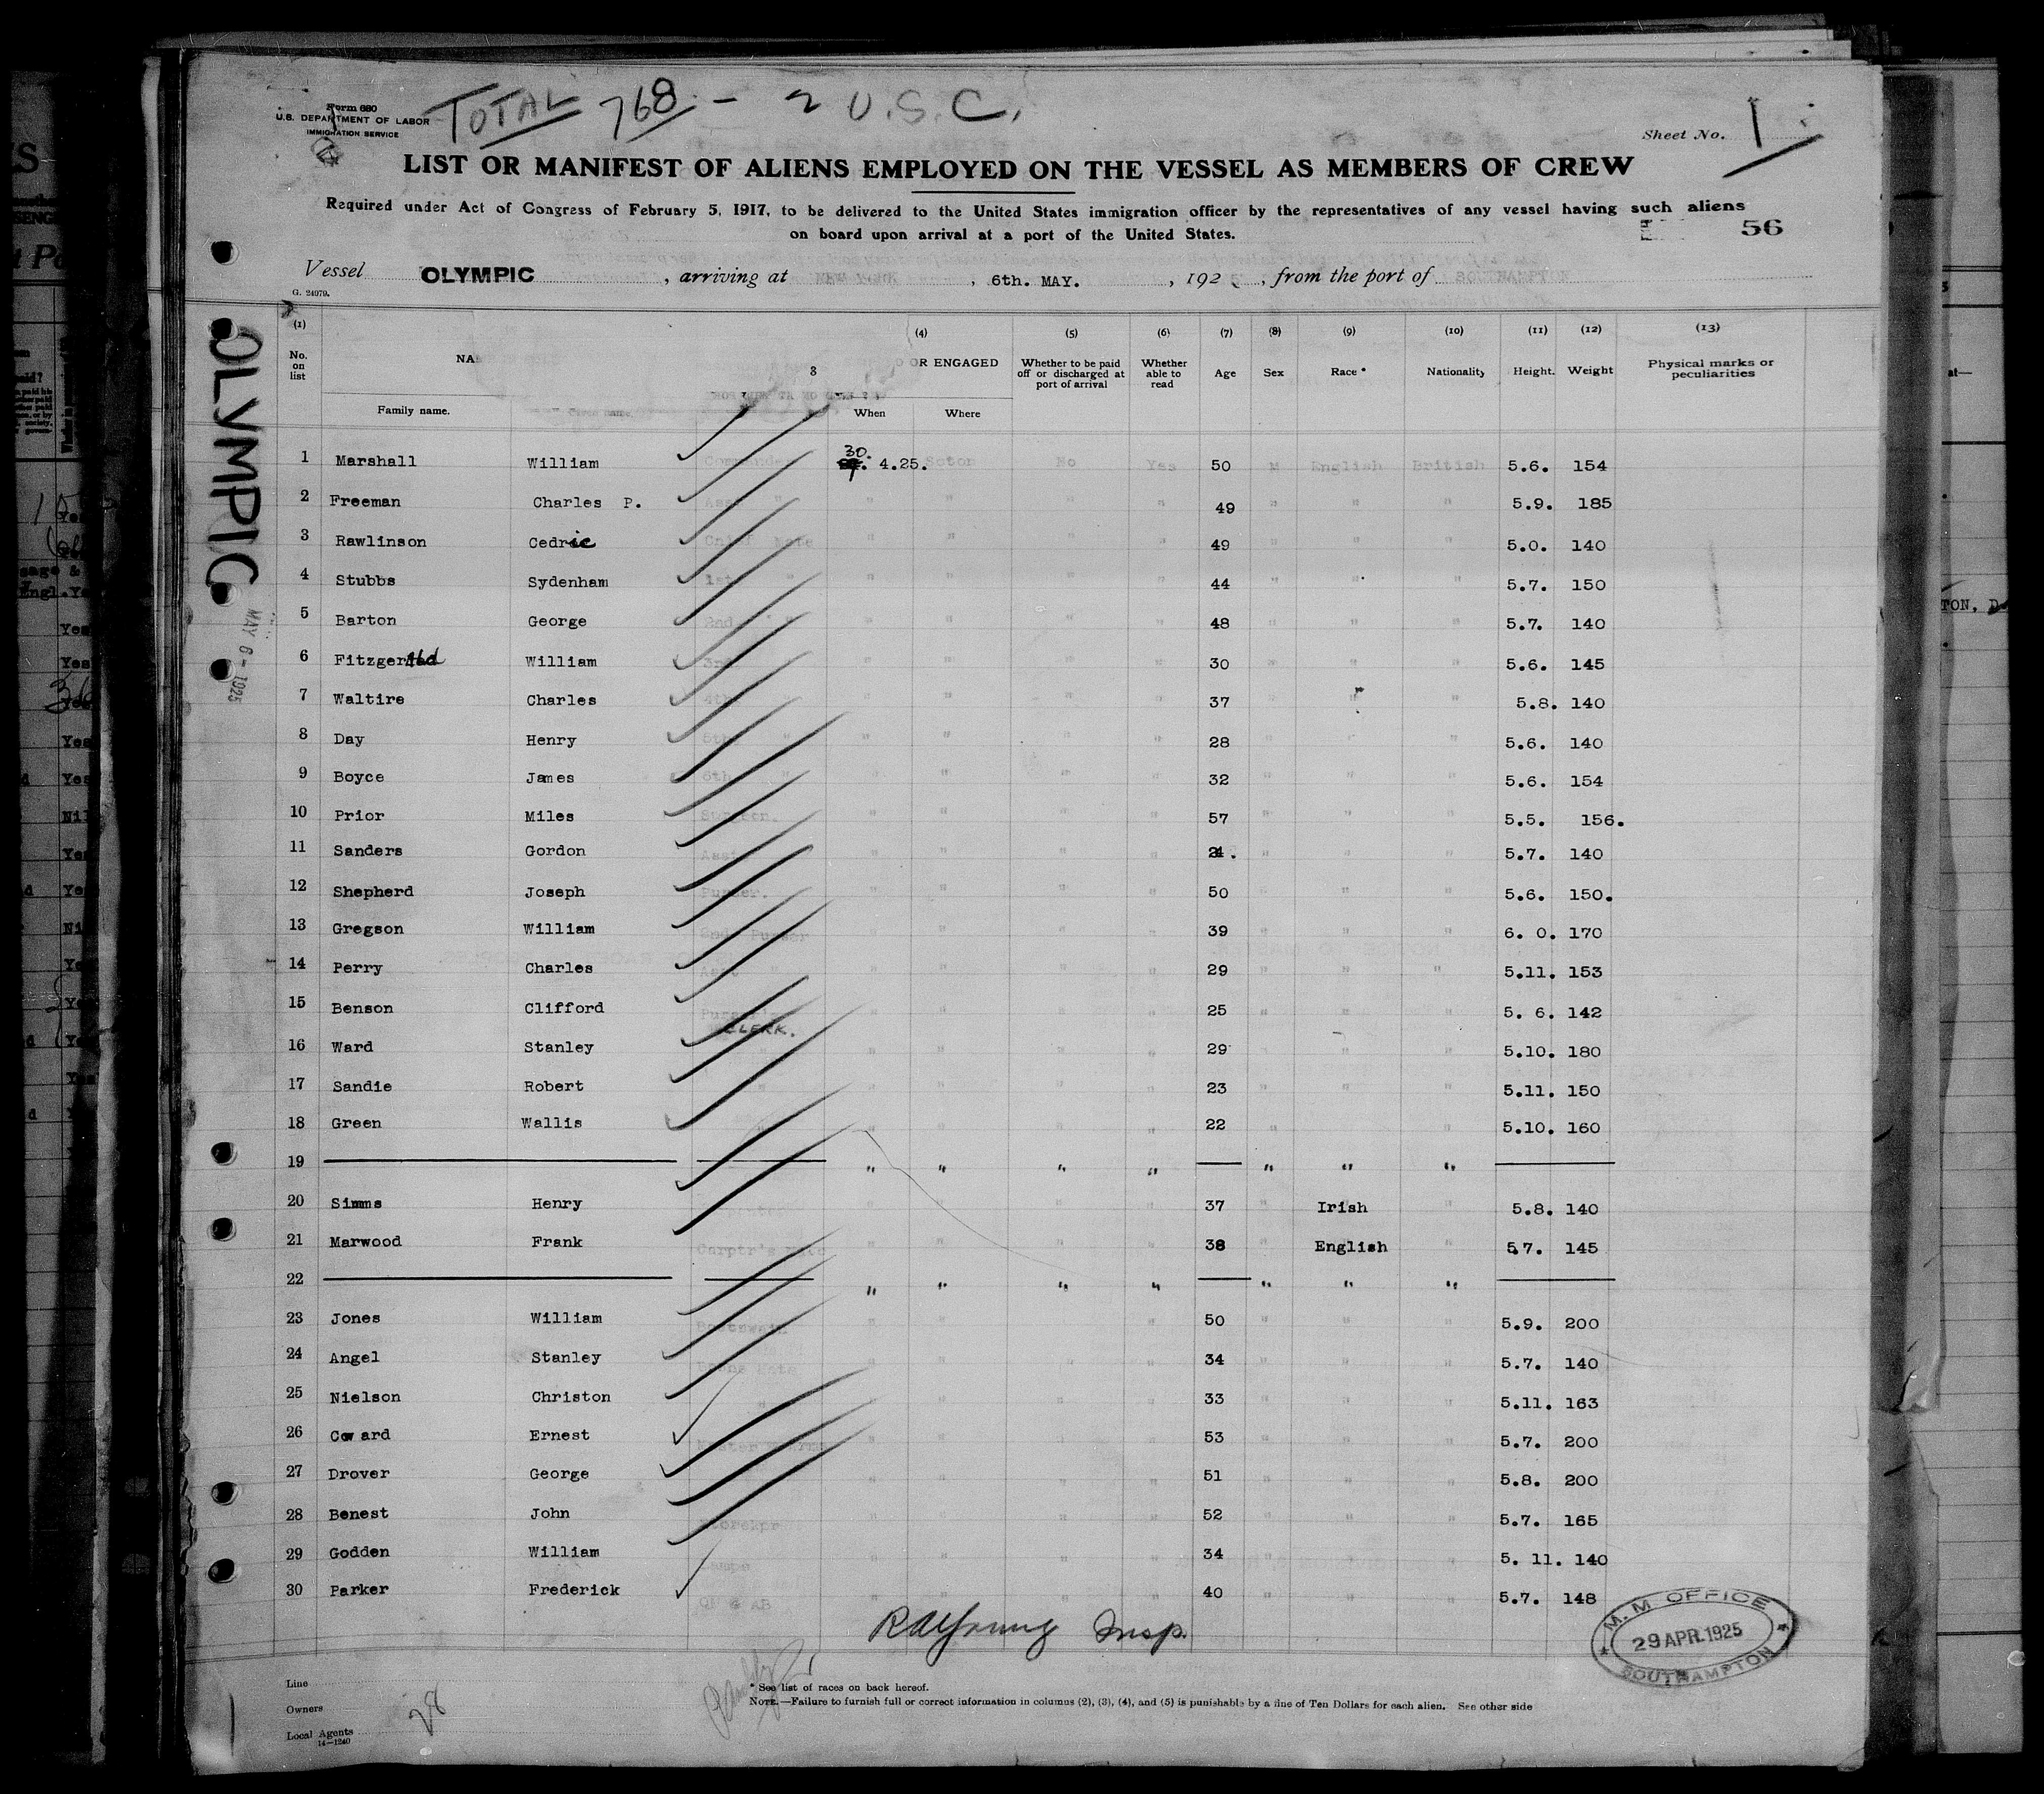 TOTAL 768 - 2 U.S.C.
Form 680
U.S. DEPARTMENT OF LABOR
IMMIGRATION SERVICE
Sheet No. 1
LIST OR MANIFEST OF ALIENS EMPLOYED ON THE VESSEL AS MEMBERS OF CREW
Required under Act of Congress of February 5, 1917, to be delivered to the United States immigration officer by the representatives of any vessel having such aliens
on board upon arrival at a port of the United States.
56
Vessel OLYMPIC , arriving at NEW YORK , 6th. MAY. , 192 , from the port of SOUTHAMPTON
G. 24979.
OLYMPIC
MAY 6 - 1925
(1) (4) (5) (6) (7) (8) (9) (10) (11) (12) (13)
No. on list NA 3 OR ENGAGED Whether to be paid off or discharged at port of arrival Whether able to read Age Sex Race * Nationality Height. Weight Physical marks or peculiarities
Family name. Given name. When Where
1 Marshall William Commander 30. 4.25. Soton No Yes 50 M English British 5.6. 154
2 Freeman Charles P. Asst " " " " " 49 " " " 5.9. 185
3 Rawlinson Cedric Chief Mate " " " " 49 " " " 5.0. 140
4 Stubbs Sydenham 1st " " " " " 44 " " " 5.7. 150
5 Barton George 2nd " " " " " 48 " " " 5.7. 140
6 Fitzgerald William 3rd " " " " " 30 " " " 5.6. 145
7 Waltire Charles 4th " " " " " 37 " " " 5.8. 140
8 Day Henry 5th " " " " " 28 " " " 5.6. 140
9 Boyce James 6th " " " " " 32 " " " 5.6. 154
10 Prior Miles Surgeon. " " " " 57 " " " 5.5. 156.
11 Sanders Gordon Asst " " " " 24. " " " 5.7. 140
12 Shepherd Joseph Purser. " " " " 50 " " " 5.6. 150.
13 Gregson William 2nd Purser " " " " 39 " " " 6. 0. 170
14 Perry Charles Asst " " " " 29 " " " 5.11. 153
15 Benson Clifford CLERK. " " " " 25 " " " 5. 6. 142
16 Ward Stanley " " " " " 29 " " " 5.10. 180
17 Sandie Robert " " " " " 23 " " " 5.11. 150
18 Green Wallis " " " " " 22 " " 5.10. 160
19 " " " " " " "
20 Simms Henry " " " " 37 " Irish " 5.8. 140
21 Marwood Frank Carptr's Mate " " " " 38 " English " 5.7. 145
22 " " " " " " "
23 Jones William Boatswain " " " " 50 " " " 5.9. 200
24 Angel Stanley Mate " " " " 34 " " " 5.7. 140
25 Nielson Christon " " " " " 33 " " " 5.11. 163
26 Coward Ernest Master " " " " 53 " " " 5.7. 200
27 Drover George " " " " 51 " " " 5.8. 200
28 Benest John Storekpr " " " " 52 " " " 5.7. 165
29 Godden William Lamps " " " " 34 " " " 5. 11. 140
30 Parker Frederick AB " " " " 40 " " " 5.7. 148
Insp.
M. M. OFFICE
29 APR. 1925
SOUTHAMPTON
Line
Owners
Local Agents
14—1240
28
* See list of races on back hereof.
NOTE.—Failure to furnish full or correct information in columns (2), (3), (4), and (5) is punishable by a fine of Ten Dollars for each alien. See other side